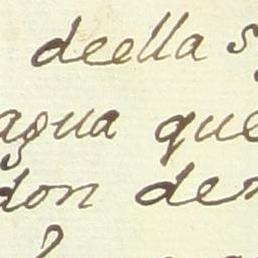 deella s
agua que
don den